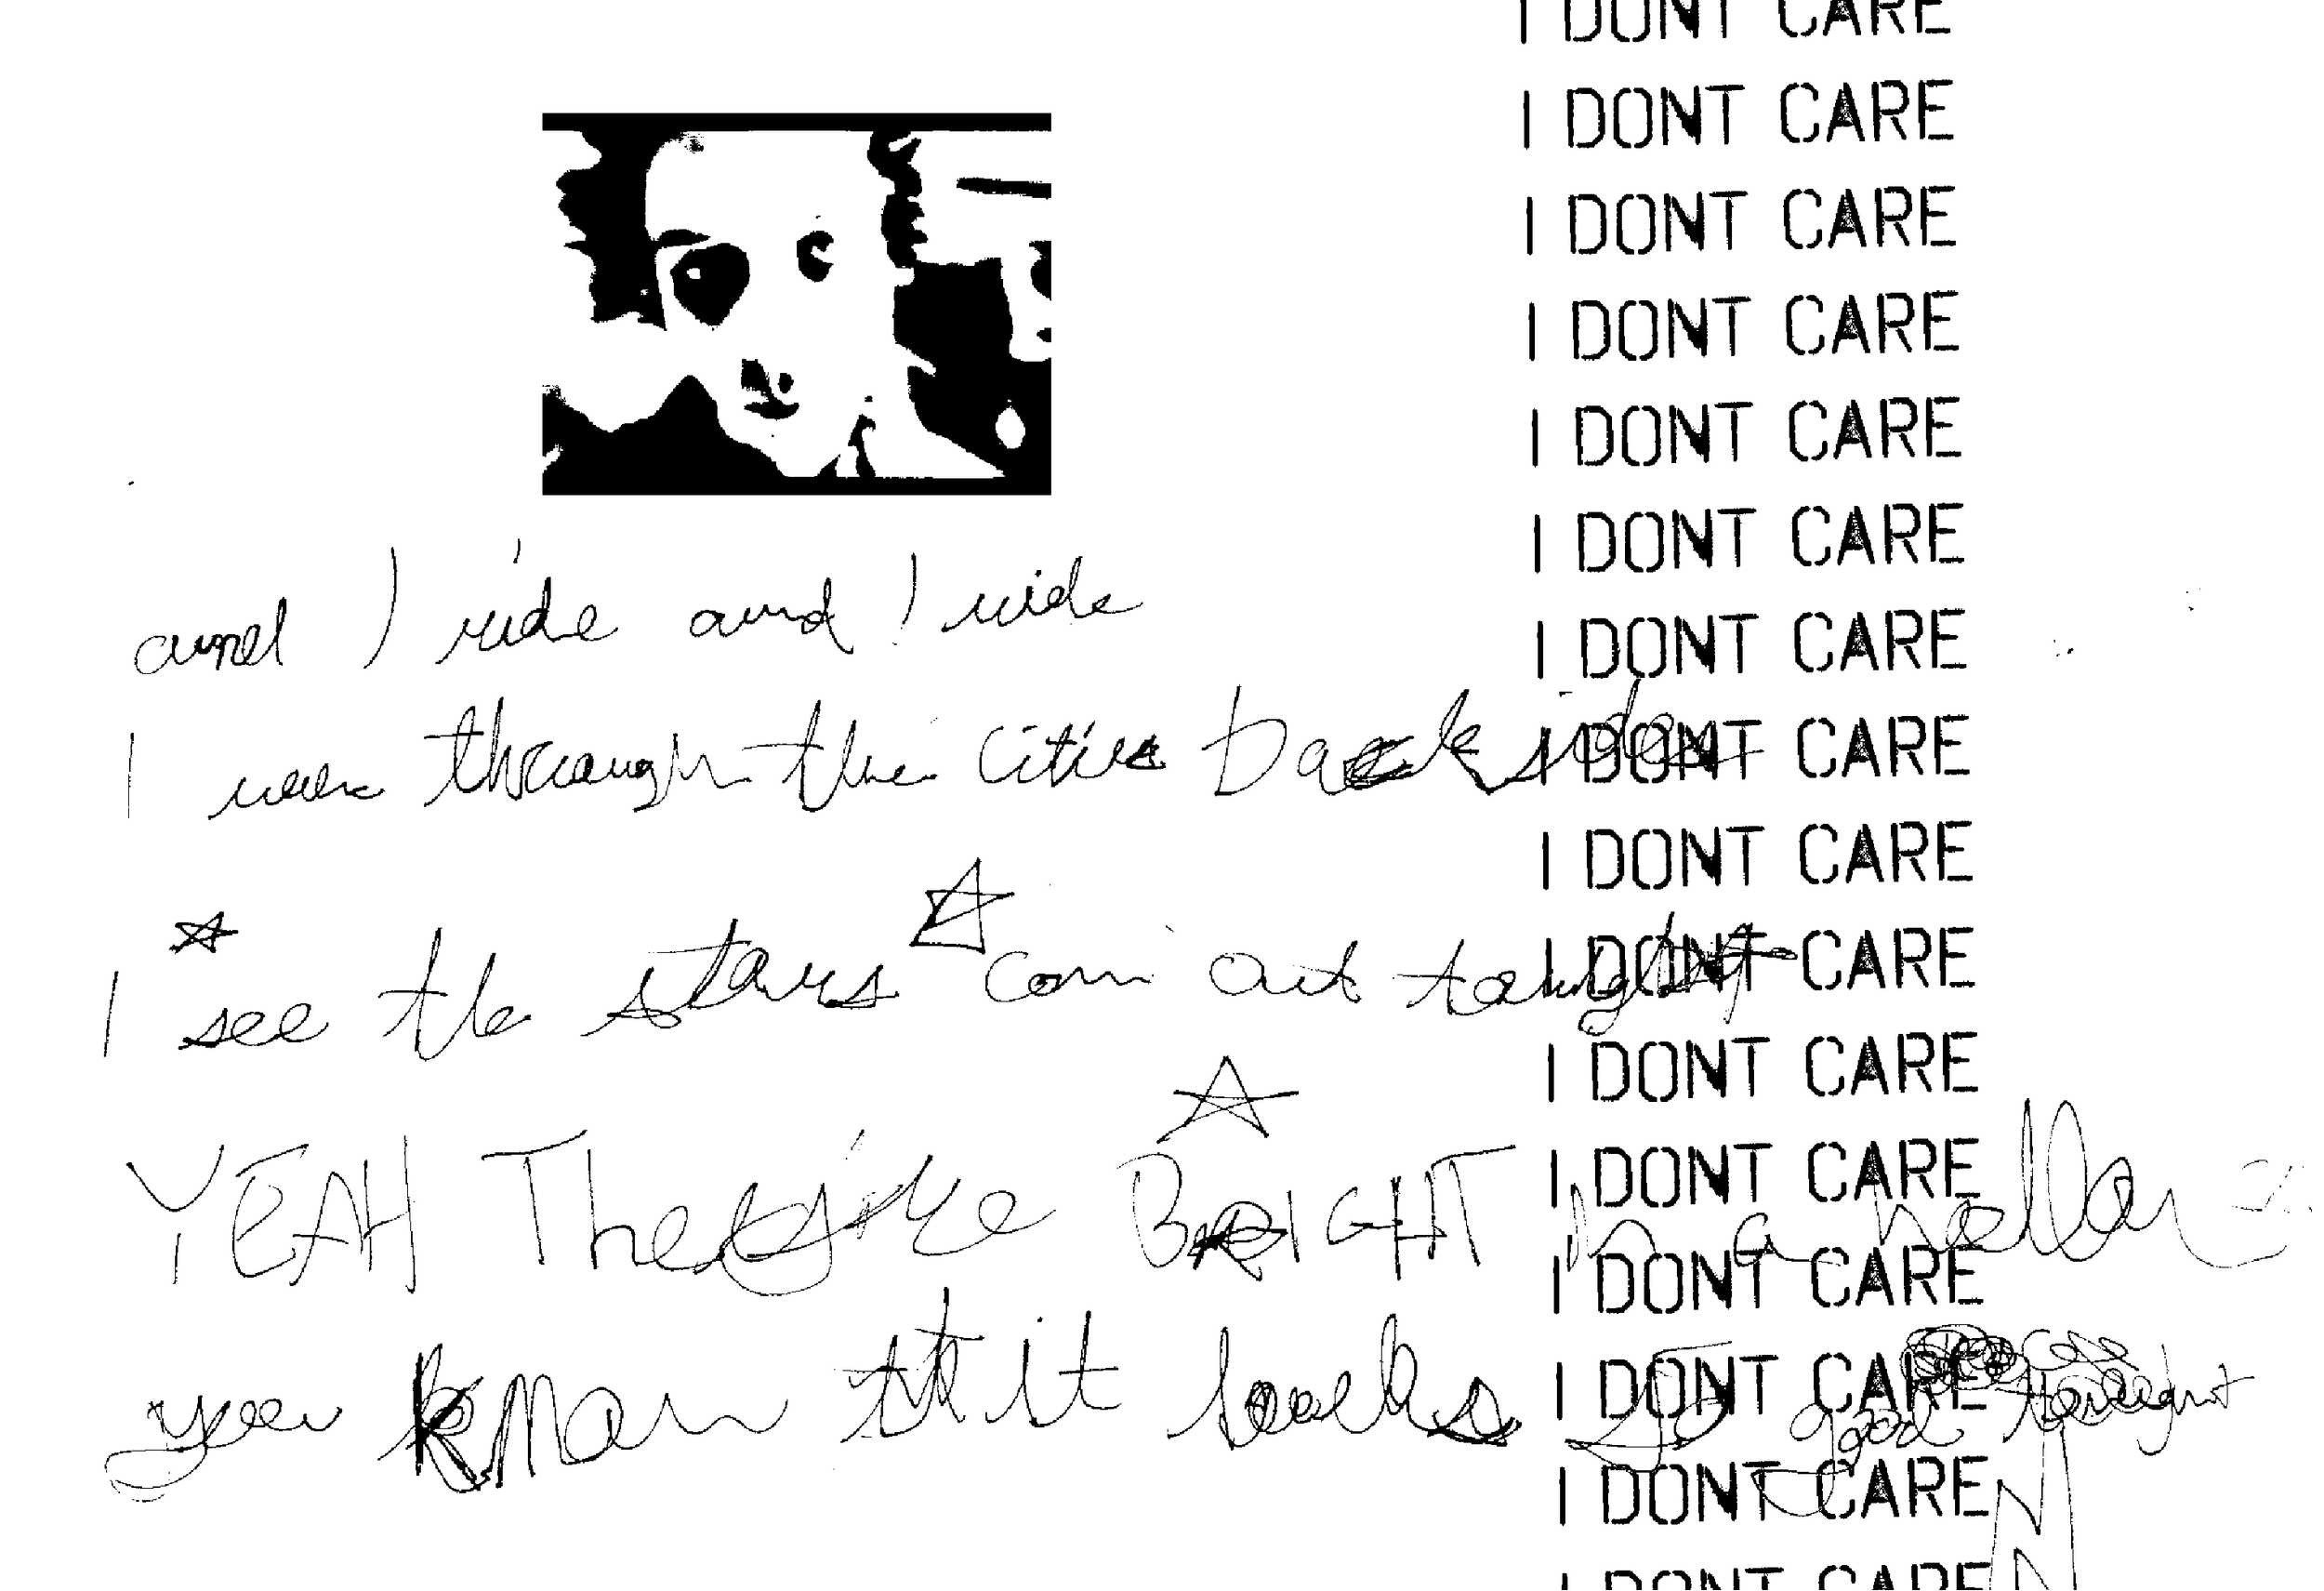 and I ride and I ride
I through the cities back sides
I see the stars com out tonight
YEAH They're BRIGHT in a
you know it looks so good tonight
I DONT CARE
I DONT CARE
I DONT CARE
I DONT CARE
I DONT CARE
I DONT CARE
I DONT CARE
I DONT CARE
I DONT CARE
I DONT CARE
I DONT CARE
I DONT CARE
I DONT CARE
I DONT CARE
I DONT CARE
I DONT CARE